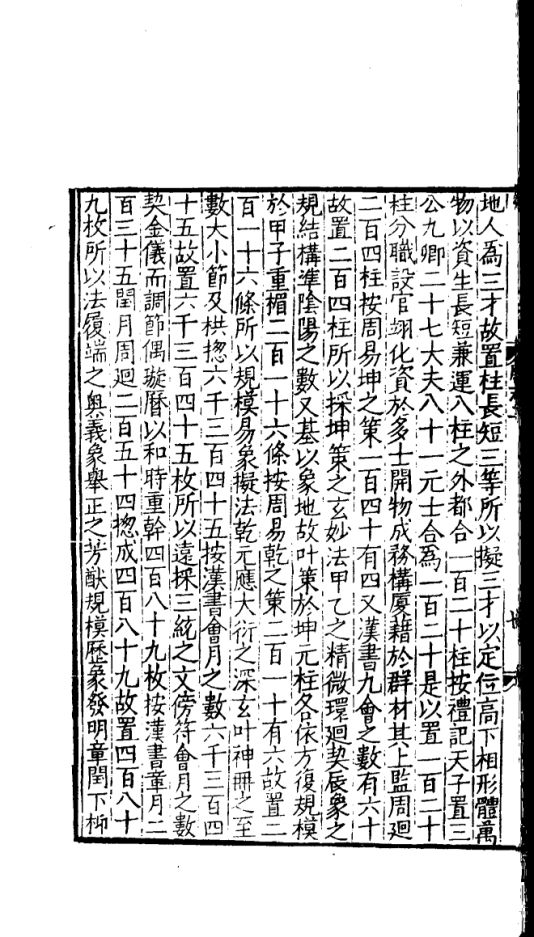 地人為三才故置柱長短三等所以擬三才以定位高下相形體萬
物以資生長短兼運八柱之外都合一百二十柱按禮記天子置三
公九卿二十七大夫八十一元士合為一百二十是以置一百二十
柱分職設官翊化資於多士開物成務構廈藉於群材其上監周迴
二百四柱按周易坤之策一百四十有四又漢書九會之數有六十
故置二百四柱所以採坤策之玄妙法甲乙之精微環迴契辰象之
規結構準陰陽之數又基以象地故叶策於坤元柱各依方復規模
於甲子重楣二百一十六條按周易乾之策二百一十有六故置二
百一十六條所以規模易象擬法乾元應大衍之深玄叶神冊之至
數大小節及栱㧾六千三百四十五按漢書會月之數六千三百四
十五故置六千三百四十五枚所以遠採三統之文傍符會月之數
契金儀而調節偶璇曆以和時重幹四百八十九枚按漢書章月二
百三十五閏月周迴二百五十四㧾成四百八十九故置四百八十
九枚所以法履端之奧義象舉正之芳猷規模歷象發明章閏下柳